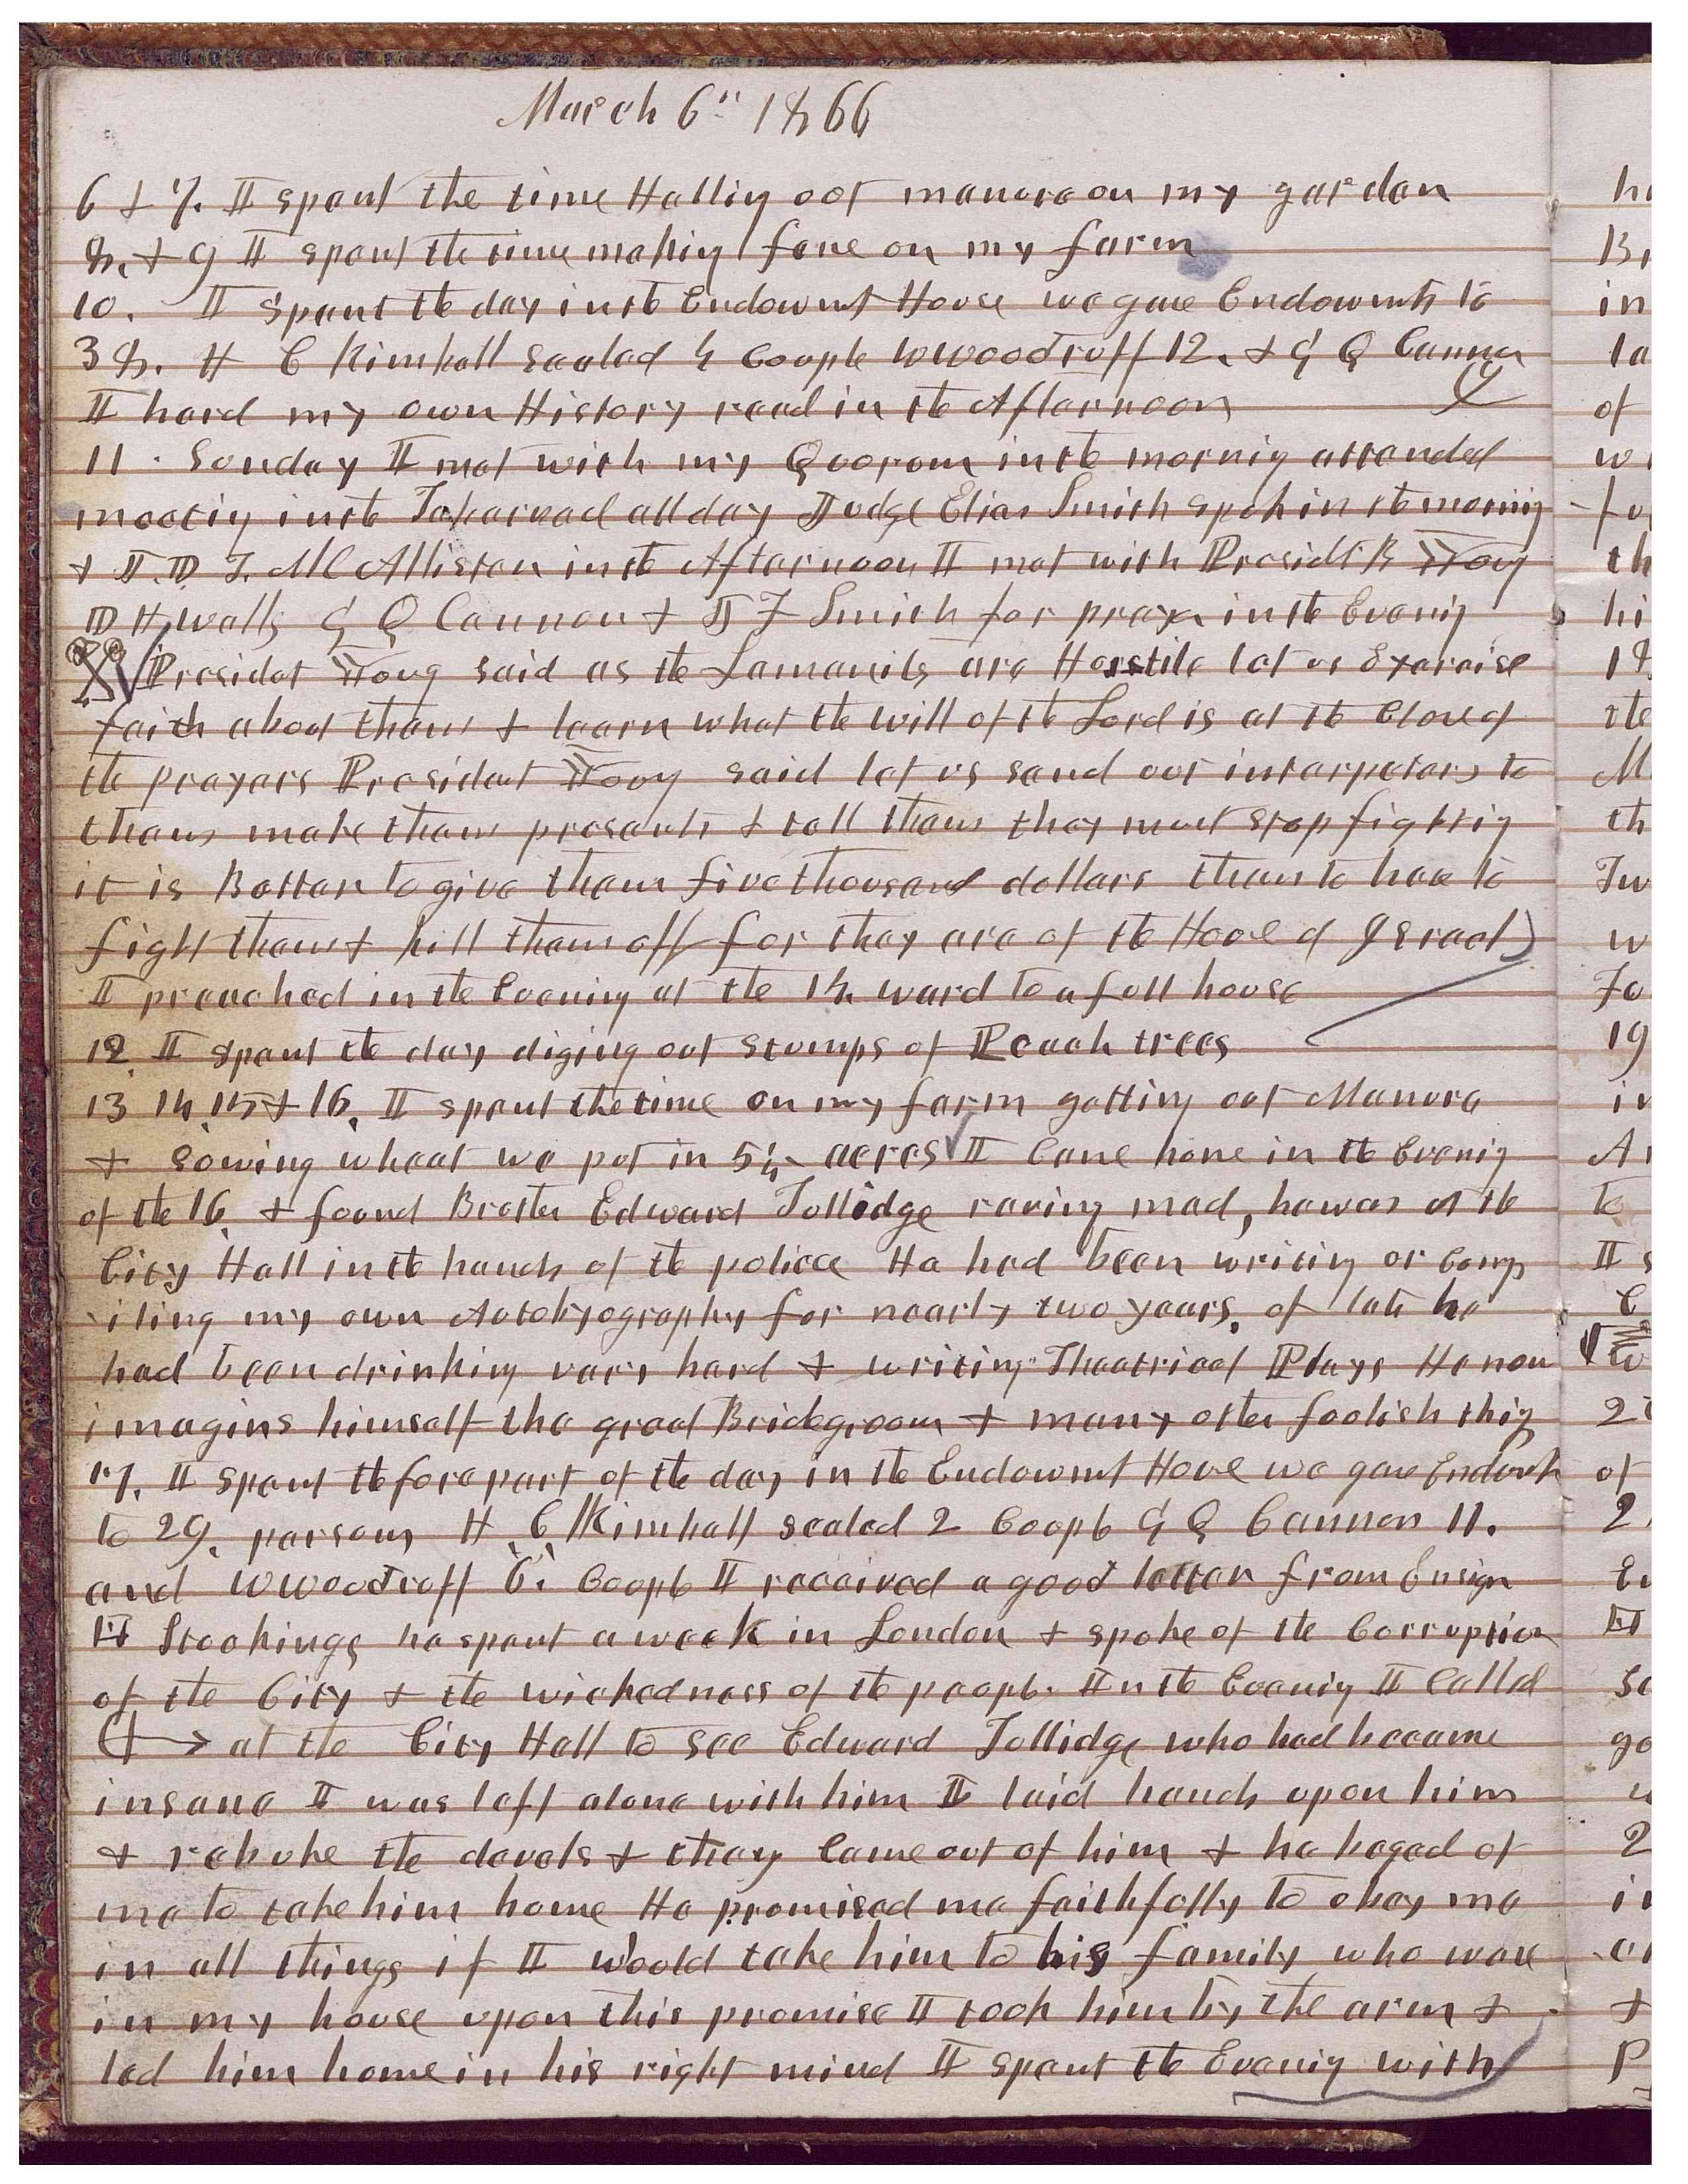 March 6th 1866
6 & 7. I spent the time Halling out manure on my garden
8. & 9 I spent the time making fence on my farm
10. I spent the day in the Endowmt House we gave Endowmts to
38. H C Kimball sealed 4 Couple W Woodruff 12. & G Q Cannon
I hard my own History read in the Afternoon
11. Sunday I met with my Quorom in the mornig attended
meetig in the Tabernacl all day Judge Elias Smith spok in the mornig
& J. D. T. McAllister in the Afternoon I met with Presidt B Young
D H Wells G Q Cannon & J F Smith for prayer in the Evenig
Presidet Young said as the Lamanits are Horstile let us Exercise
faith about them & learn what the will of the Lord is at the Close of
the prayers President Young said let us send out interpeters to
them make them presents & tell them they must stop fightig
it is Better to give them five thousand dollars than to have to
fight them & kill them off for they are of the House of Israel
I preached in the Evening at the 14. ward to a full house
12 I spent the day diging out stumps of Peach trees
13 14. 15 & 16. I spent the time on my farm getting out Manure
& sowing wheat we put in 5¼ acres I Came home in the Evenig
of the 16 & found Brother Edward Tullidge raving mad, he was at the
City Hall in the hands of the police He had been writing or Comp
iling my own Autobyography for nearly two years. of late he
had been drinking very hard & writing Theatrical Plays He now
imagins himself the great Bridegroom & many other foolish thig
17. I spent the fore part of the day in the Endowmt House we gave Endowmts
to 29. persons H. C. Kimball sealed 2 Couple G Q Cannon 11.
and W Woodruff 6. Couple I received a good letter from Ensign
I Stockings he spent a week in London & spoke of the Corruption
of the City & the wickedness of the people. In the Evenig I Called
at the City Hall to see Edward Tullidge who had became
insane I was left alone with him I laid hands upon him
& rebuke the devels & they Came out of him & he beged of
me to take him home He promised me faithfully to obey me
in all things if I would take him to his family who ware
in my house upon this promise I took him by the arm &
led him home in his right mind I spent the Evenig with